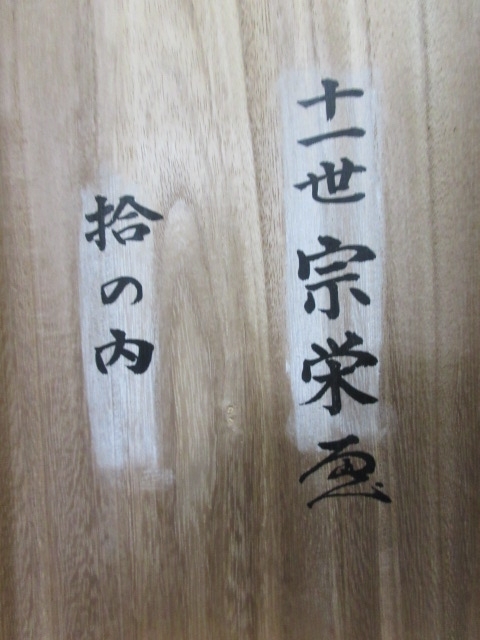 十一世宗栄画
拾の内